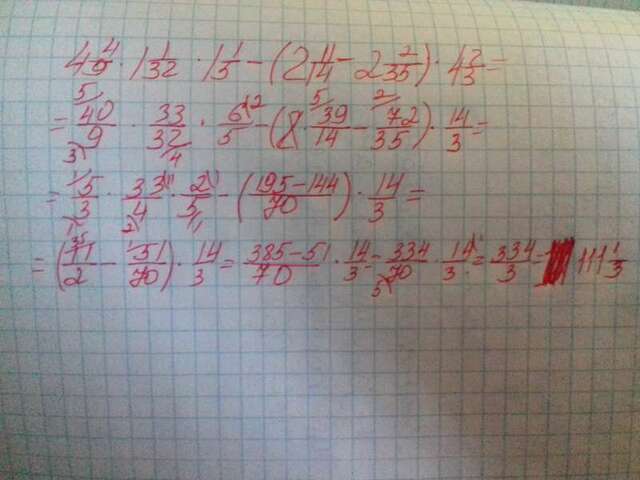 4 4/9 · 1 1/32 · 1 1/5 − (2 11/14 − 2 2/35) · 4 2/3 =
= 40/9 · 33/32 · 6/5 − (39/14 − 72/35) · 14/3 =
= 5/3 · 33/4 · 2/5 − (195−144/70) · 14/3 =
= (11/2 − 51/70) · 14/3 = 385−51/70 · 14/3 = 334/70 · 14/3 = 334/3 = 111 1/3